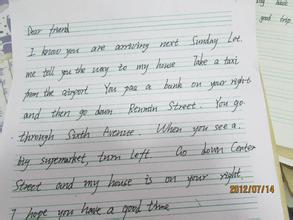 Dear friend
I know you are arriving next Sunday Let
me tell you the way to my house Take a taxi
from the airport You pass a bank on your right
and then go down Street. You go
through Sixth Avenue. When you see a
big supermarket, turn left Go down Center
Street and my house is on your right,
I hope you have a good time
good trip
2012/07/14